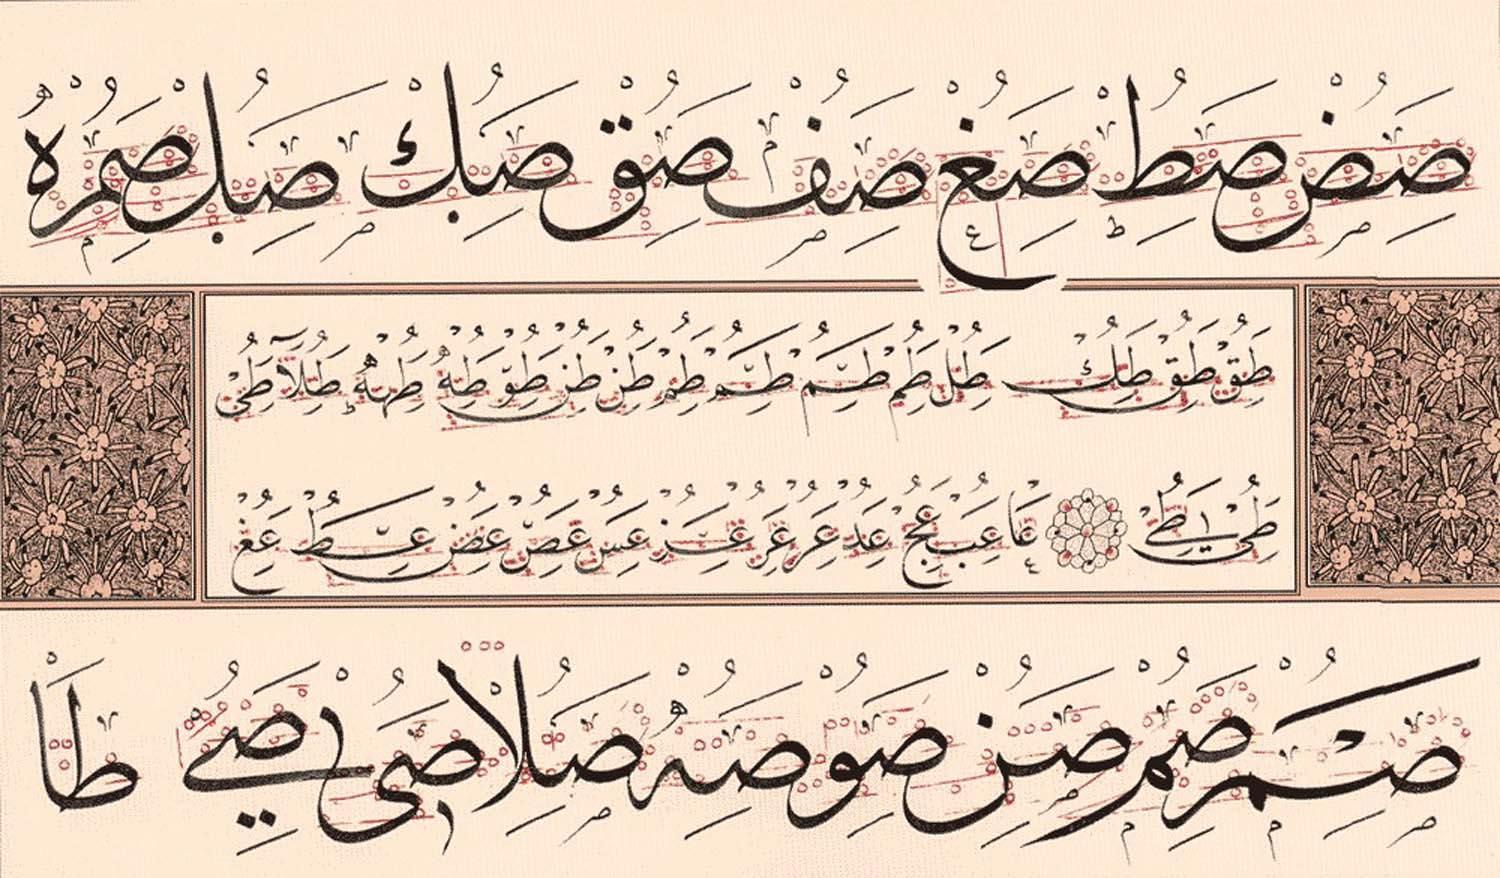 صض صط صغ صف صق صبك صبل صمره
طق طق طك طل طم طم طم طم طن طن طو طه طه طلا طى
طى طى عا عب عج عد عر عر عس عص عض عط عغ
صم صم صن صو صه صلا صى صي طا